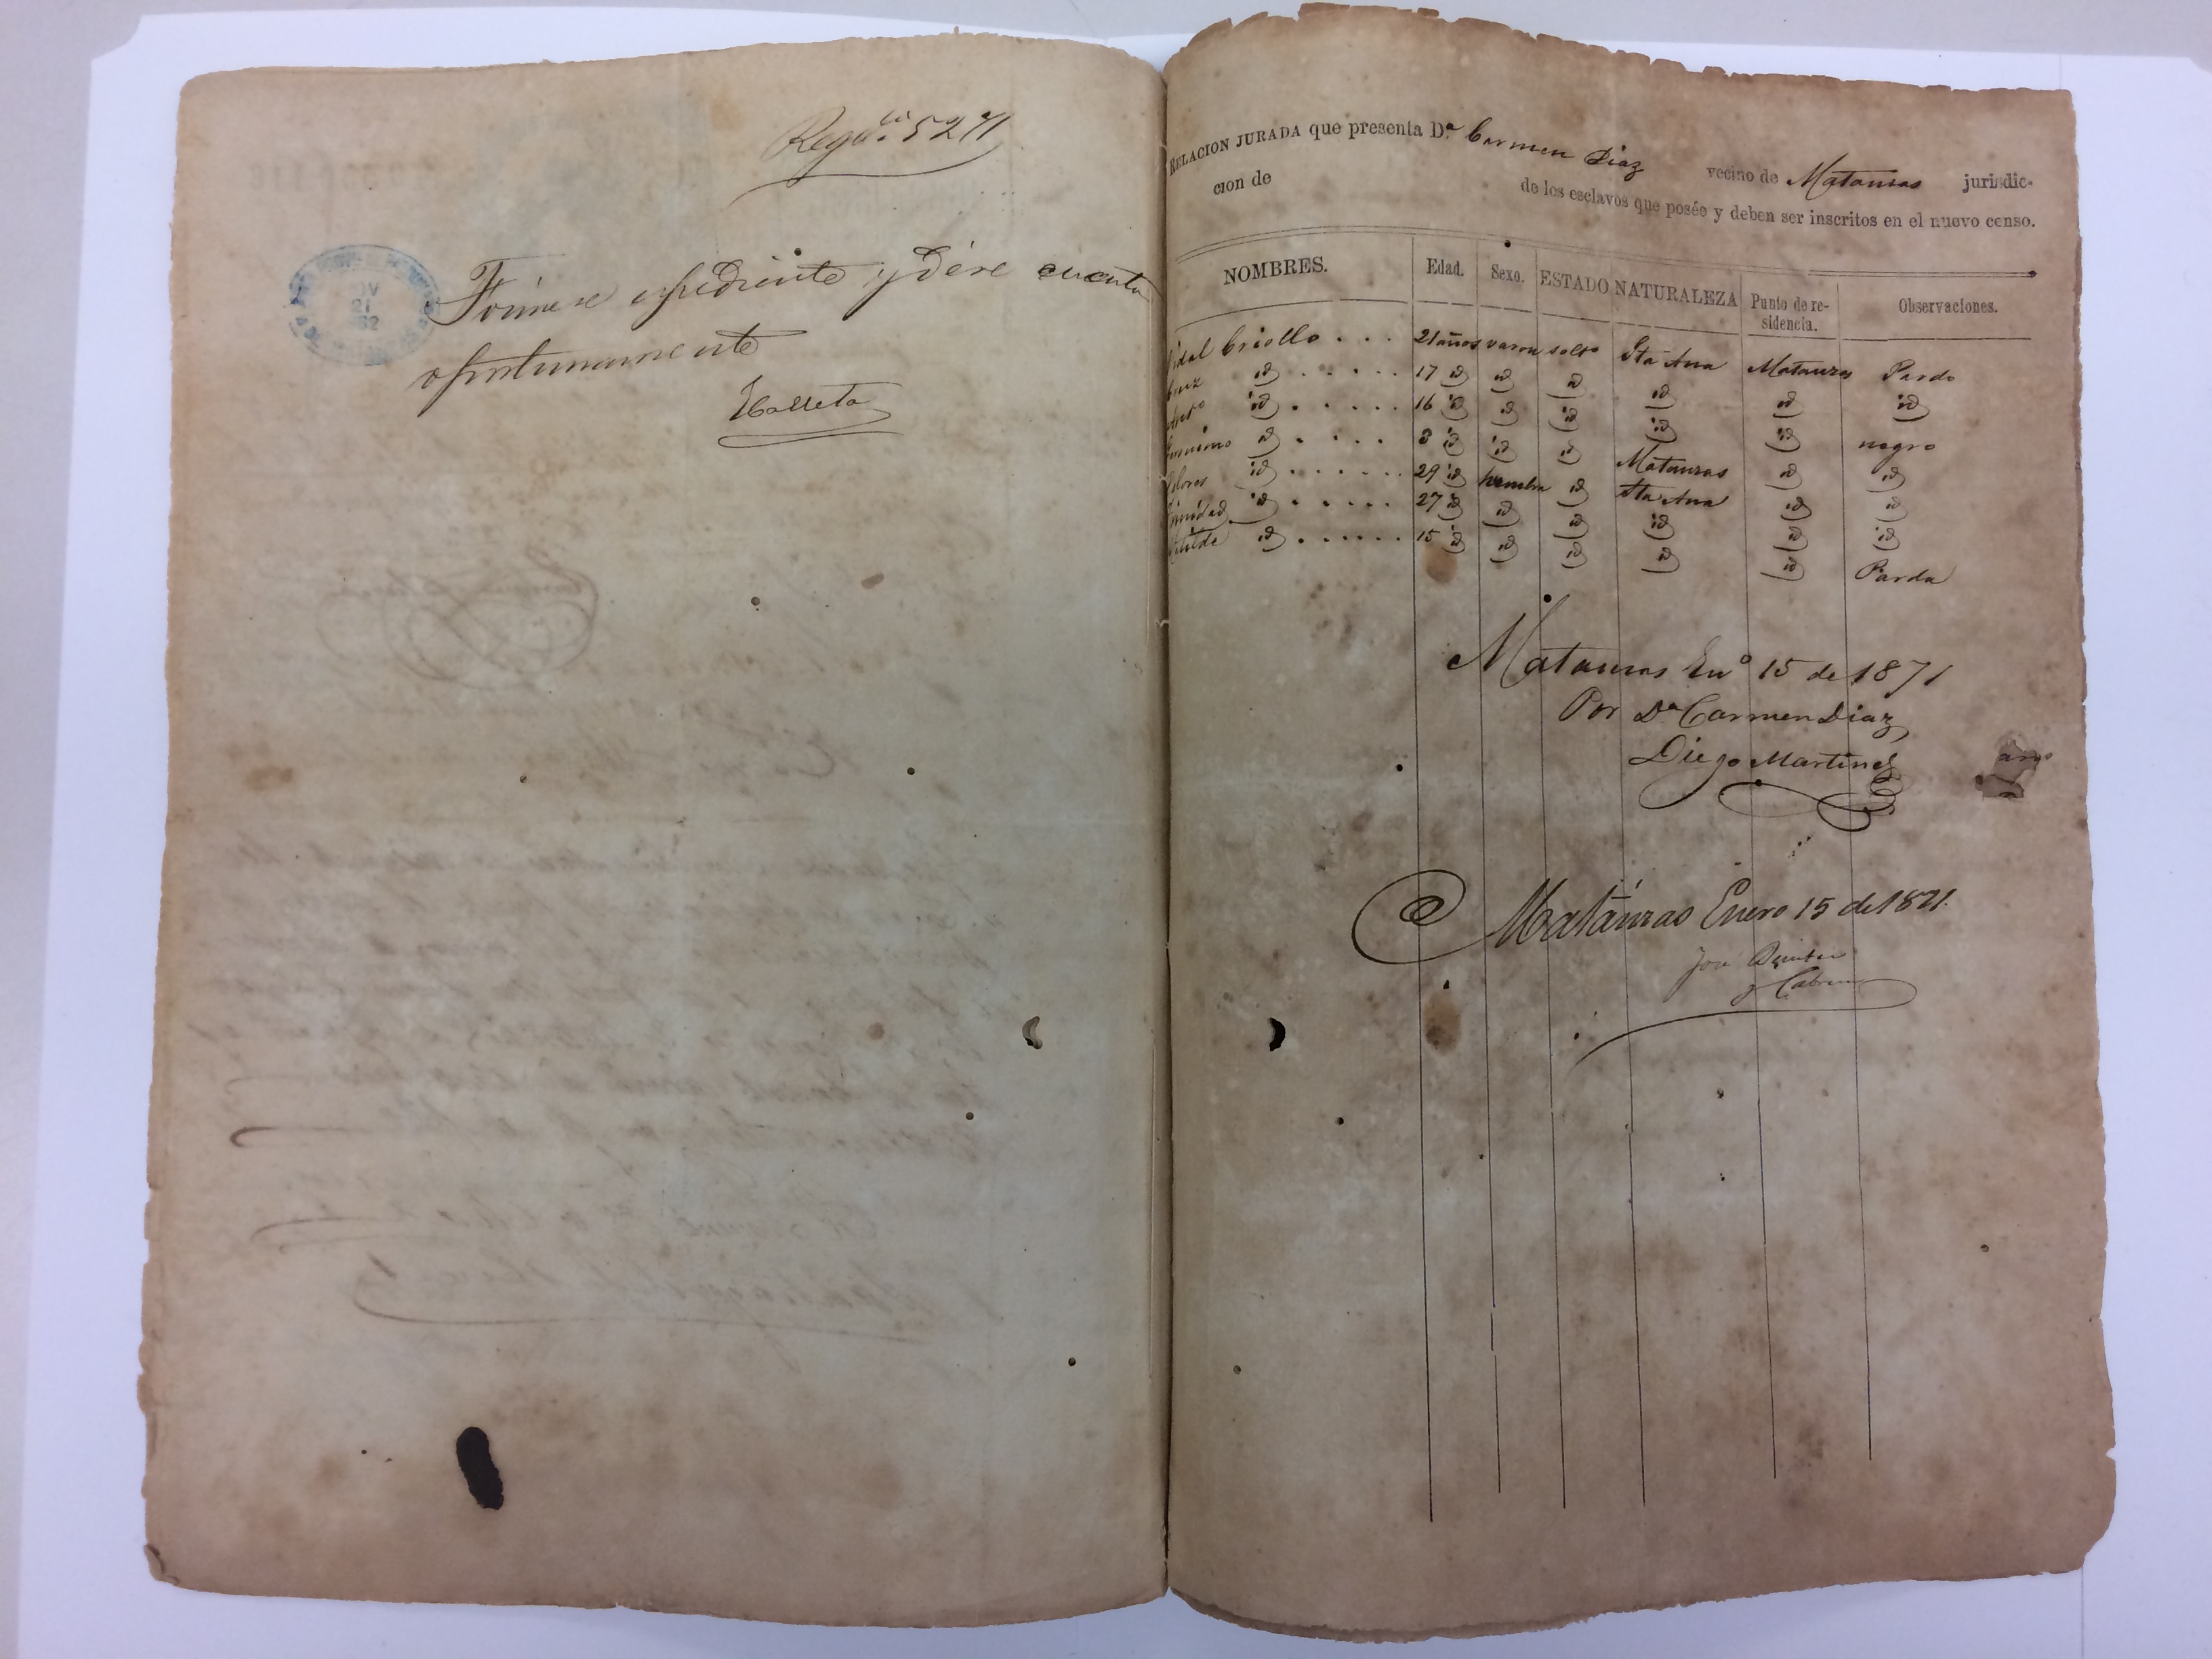 5271
Fórmese espediente y dése cuenta
oportunamente
RELACION JURADA que presenta D.ª Carmen Diaz vecino de Matanzas jurisdic-
cion de de los esclavos que poséo y deben ser inscritos en el nuevo censo.
NOMBRES. Edad. Sexo. ESTADO NATURALEZA Punto de re-sidencia. Observaciones.
Criollo . . . 21 años varon solt.º Sta Ana Matanzas Pardo
id . . . . . . 17 id id id id id id
id . . . . . 16 id id id id id negro
id . . . . 8 id id id Matanzas id id
id . . . . . . 29 id hembra id Sta Ana id id
id . . . . . 27 id id id id id id
id . . . . . . 15 id id id id id Parda
Matanzas En.º 15 de 1871
Por D.ª Carmen Diaz
Diego Martinez
Matánzas Enero 15 de 1871.
José
y Cabrera